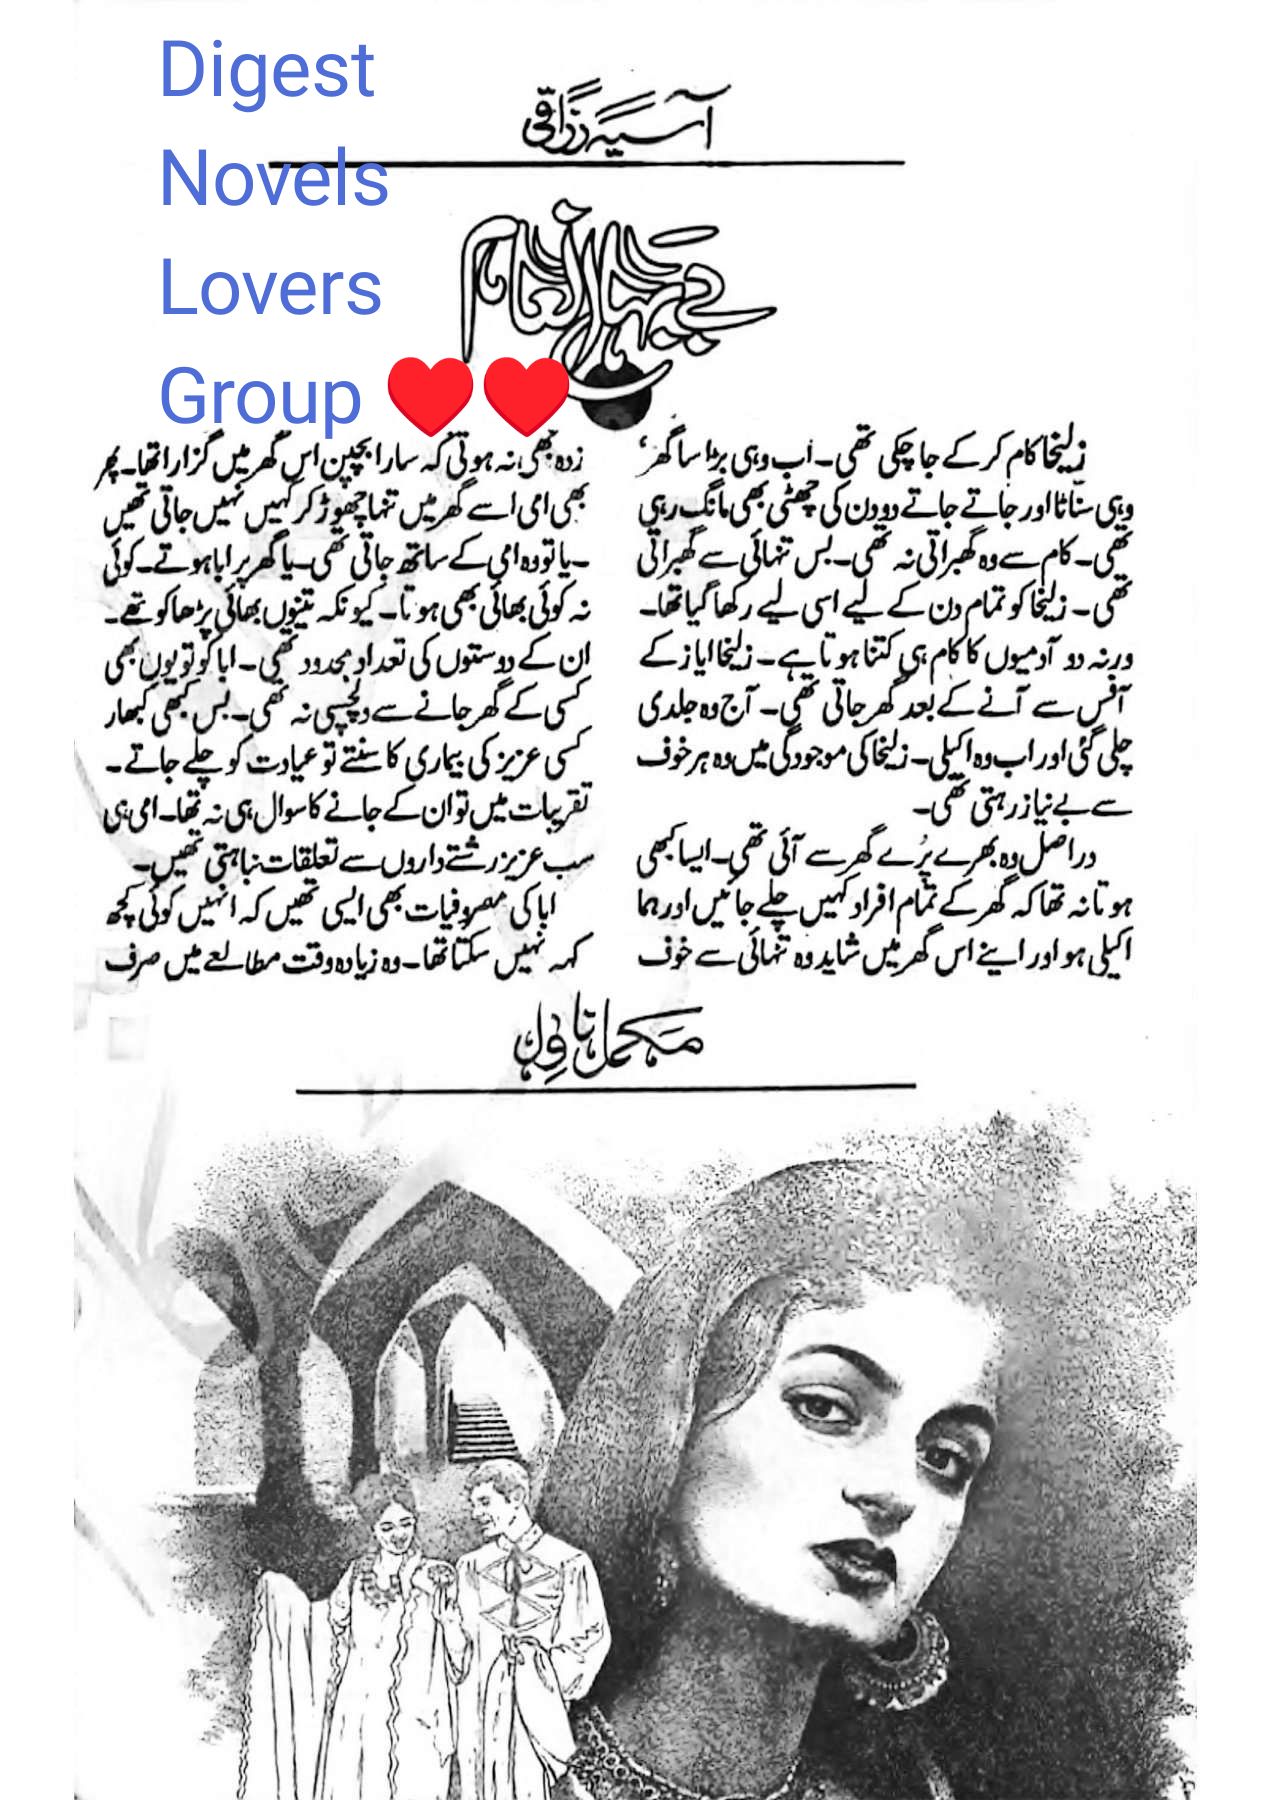 Digest
Novels
Lovers
Group ❤️❤️
آسیہ رزاقی
زلیخا کام کر کے جا چکی تھی۔ اب وہی بڑا سا گھر،
وہی سناٹا اور جاتے جاتے دو دن کی چھٹی بھی مانگ رہی
تھی۔ کام سے وہ گھبراتی نہ تھی۔ بس تنہائی سے گھبراتی
تھی۔ زلیخا کو تمام دن کے لیے اسی لیے رکھا گیا تھا۔
ورنہ دو آدمیوں کا کام ہی کتنا ہوتا ہے۔ زلیخا ایاز کے
آفس سے آنے کے بعد گھر جاتی تھی۔ آج وہ جلدی
چلی گئی اور اب وہ اکیلی۔ زلیخا کی موجودگی میں وہ ہر خوف
سے بے نیاز رہتی تھی۔
دراصل وہ بھرے پُرے گھر سے آئی تھی۔ ایسا کبھی
ہوتا نہ تھا کہ گھر کے تمام افراد کہیں چلے جائیں اور ہما
اکیلی ہو اور اپنے اس گھر میں شاید وہ تنہائی سے خوف
زدہ بھی نہ ہوتی کہ سارا بچپن اس گھر میں گزارا تھا۔ پھر
بھی امی اسے گھر میں تنہا چھوڑ کر کہیں نہیں جاتی تھیں
۔ یا تو وہ امی کے ساتھ جاتی تھی۔ یا گھر پر ابا ہوتے۔ کوئی
نہ کوئی بھائی بھی ہوتا۔ کیونکہ تینوں بھائی پڑھاکو تھے۔
ان کے دوستوں کی تعداد محدود تھی۔ ابا کو تو یوں بھی
کسی کے گھر جانے سے دلچسپی نہ تھی۔ بس کبھی کبھار
کسی عزیز کی بیماری کا سنتے تو عیادت کو چلے جاتے۔
تقریبات میں تو ان کے جانے کا سوال ہی نہ تھا۔ امی ہی
سب عزیز رشتے داروں سے تعلقات نباہتی تھیں۔
ابا کی مصروفیات بھی ایسی تھیں کہ انہیں کوئی کچھ
کہہ نہیں سکتا تھا۔ وہ زیادہ وقت مطالعے میں صرف
مکمل ناول